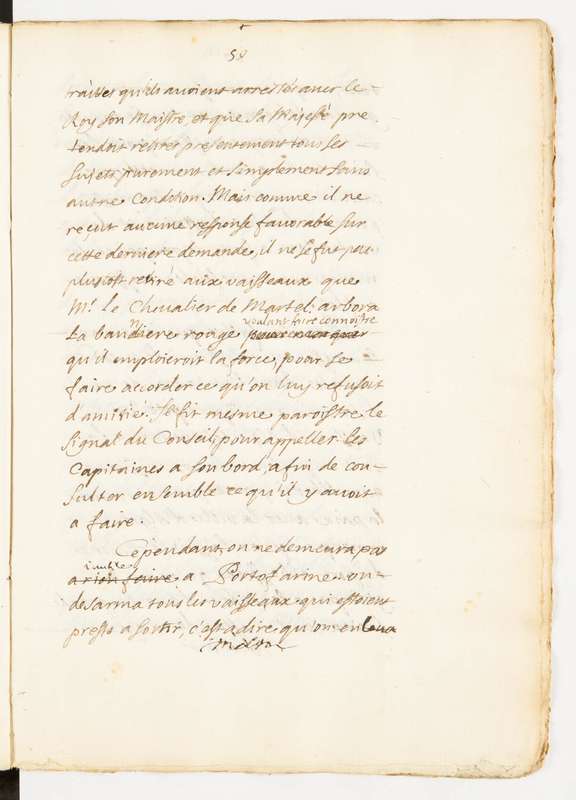 58
traittes qu'ils avoient arrestés avec le
Roy son Maistre, et que sa Majesté pre
tendoit retirer presentement tous ses
sujets purement et simplement sans
autre condition. Mais comme il ne
reçut aucune response favorable sur
cette derniere demande, il ne se fut pas
plustost retiré aux vaisseaux que
Mr. le Chevalier de Martel arbora
voulant faire connoistre
la banniere rouge pour marque
qu'il emploieroit la force pour se
faire accorder ce qu'on luy refusoit
d'amitié. Il fit mesme paroistre le
signal du Conseil pour appeller les
Capitaines a son bord, afin de con-
sulter ensemble ce qu'il y avoit
a faire.
Cependant on ne demeura pas
inutile
a rien faire a Portofarine on
desarma tous les vaisseaux qui estoient
prests a sortir, c'est a dire qu'on en leva